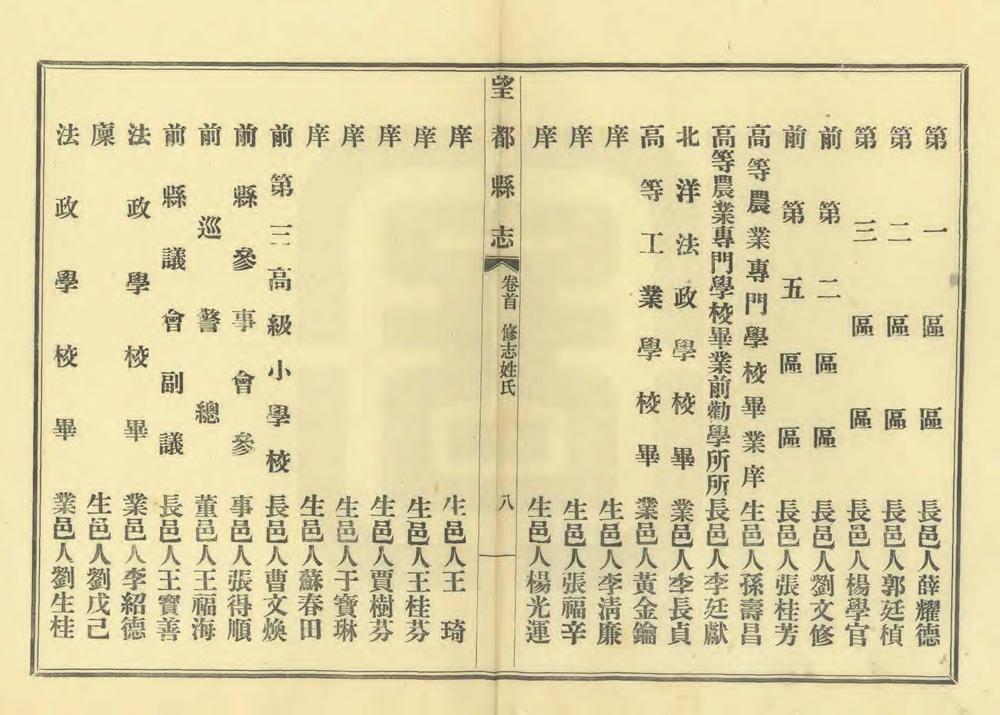 第一區區長邑人薛耀德
第二區區長邑人郭廷楨
第三區區長邑人楊學官
前第二區區長邑人劉文修
前第五區區長邑人張桂芳
高等農業專門學校畢業庠生邑人孫壽昌
高等農業專門學校畢業前勸學所所長邑人李廷獻
北洋法政學校畢業邑人李長貞
高等工業學校畢業邑人黃金鑰
庠生邑人李清廉
庠生邑人張福辛
庠生邑人楊光運
望都縣志 卷首 修志姓氏 八
庠生邑人王琦
庠生邑人王桂芬
庠生邑人賈樹芬
庠生邑人于寶琳
庠生邑人蘇春田
前第三高級小學校長邑人曹文煥
前縣參事會參事邑人張得順
前巡警總董邑人王福海
前縣議會副議長邑人王寶善
法政學校畢業邑人李紹德
廩生邑人劉戊己
法政學校畢業邑人劉生桂